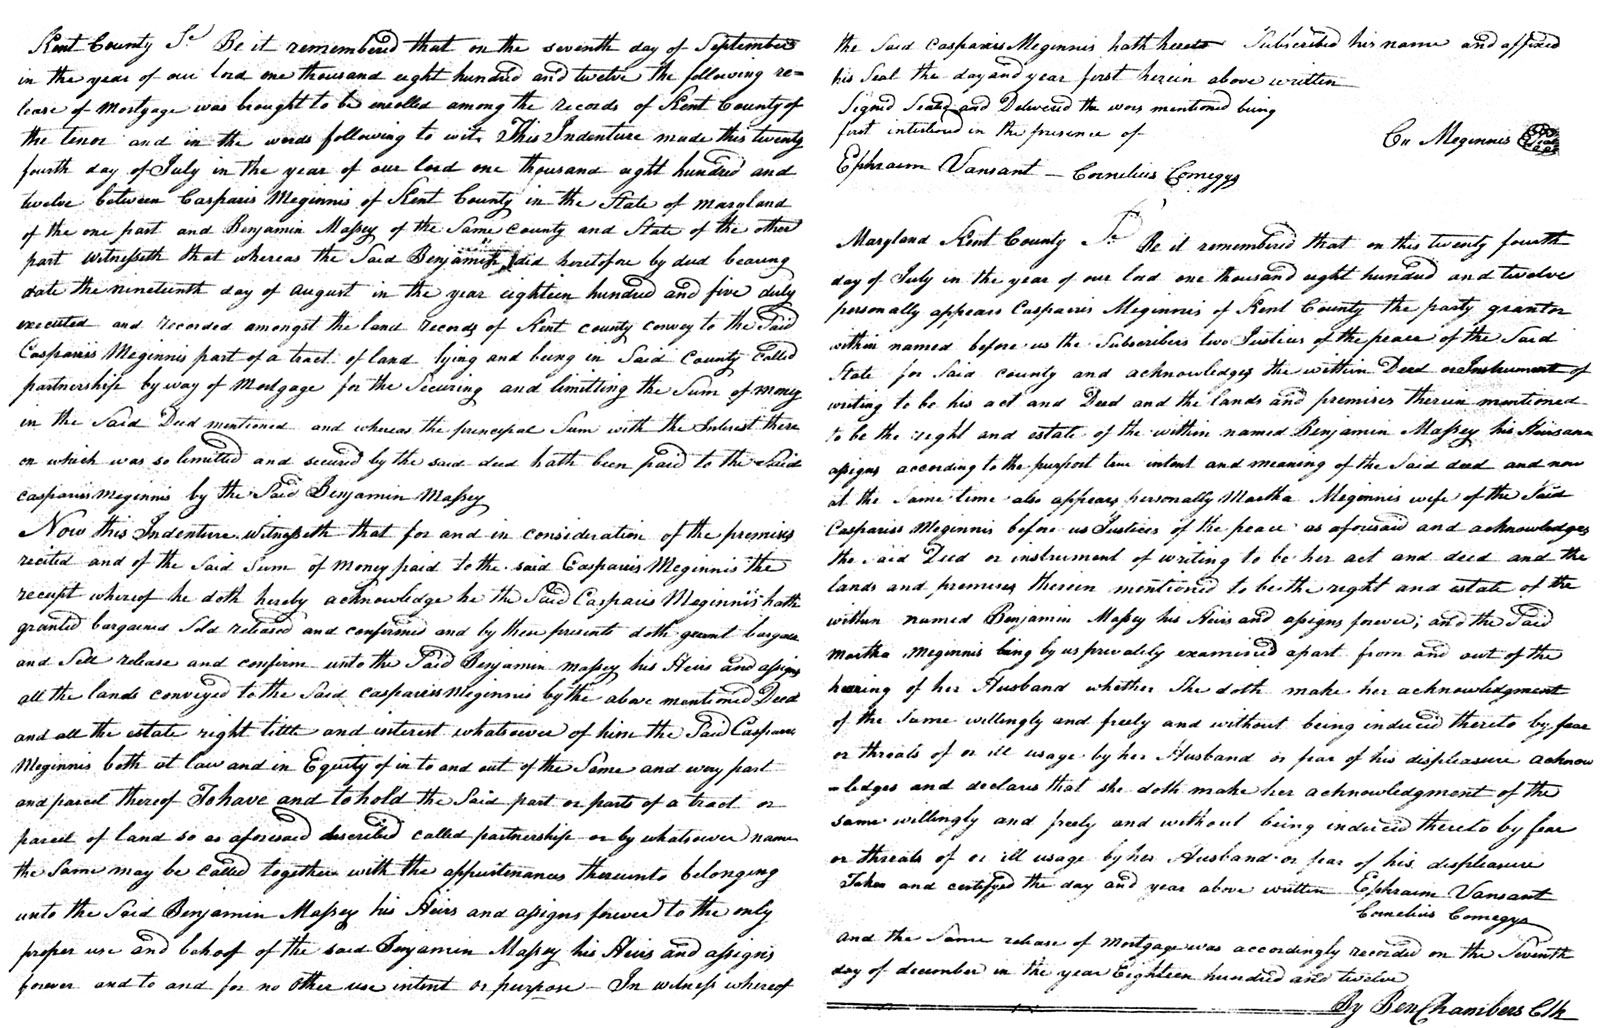 Kent County Sc Be it remembered that on the seventh day of September
in the year of our lord one thousand eight hundred and twelve the following re=
lease of Mortgage was brought to be enrolled among the records of Kent County of
the tenor and in the words following to wit, This Indenture made this twenty
fourth day of July in the year of our lord one thousand eight hundred and
twelve between Casparis Meginnis of Kent County in the State of Maryland
of the one part and Benjamin Massey of the Same County and State of the other
part Witnesseth that whereas the Said Benjamin did heretofore by deed bearing
date the nineteenth day of August in the year eighteen hundred and five duly
executed and recorded amongst the land records of Kent county convey to the Said
Casparis Meginnis part of a tract of land lying and being in Said County Called
partnership by way of Mortgage for the Securing and limitting the Sum of money
in the Said Deed mentioned and whereas the principal Sum with the Interest there
on which was so limitted and secured by the said deed hath been paid to the Said
Casparis Meginnis by the Said Benjamin Massey
Now this Indenture Witnesseth that for and in consideration of the premises
recited and of the Said Sum of Money paid to the said Casparis Meginnis the
receipt whereof he doth hereby acknowledge he the Said Casparis Meginnis hath
granted bargained Sold released and confirmed and by these presents doth grant bargain
and Sell release and confirm unto the Said Benjamin Massey his Heirs and assigns
all the lands conveyed to the Said Casparis Meginnis by the above mentioned Deed
and all the estate right title and interest whatsoever of him the Said Casparis
Meginnis both at law and in Equity of in to and out of the Same and every part
and parcel thereof To have and to hold the Said part or parts of a tract or
parcel of land so as aforesaid described called partnership or by whatsoever name
the Same may be Called together with the appurtenances thereunto belonging
unto the Said Benjamin Massey his Heirs and assigns forever to the only
proper use and behoof of the said Benjamin Massey his Heirs and assigns
forever and to and for no other use intent or purpose - In witness whereof
the Said Casparis Meginnis hath hereto Subscribed his name and affixed
his Seal the day and year first herein above written
Signed Sealed and Delivered the words mentioned being
first interlined in the presence of
Cas Meginnis
Ephraim Vansant - Cornelius Comegys
Maryland Kent County Sc Be it remembered that on this twenty fourth
day of July in the year of our lord one thousand eight hundred and twelve
personally appears Casparis Meginnis of Kent County the party grantor
within named before us the Subscribers two Justices of the peace of the Said
State for Said county and acknowledges the within Deed or Instrument of
writing to be his act and Deed and the lands and premises therein mentioned
to be the right and estate of the within named Benjamin Massey his Heirs and
assigns according to the purport true intent and meaning of the Said deed and now
at the Same time also appears personally Martha Meginnis wife of the Said
Casparis Meginnis before us Justices of the peace as aforesaid and acknowledges
the Said Deed or instrument of writing to be her act and deed and the
lands and premises therein mentioned to be the right and estate of the
within named Benjamin Massey his Heirs and assigns forever; and the Said
Martha Meginnis being by us privately examined apart from and out of the
hearing of her Husband whether She doth make her acknowledgment
of the Same willingly and freely and without being induced thereto by fear
or threats of or ill usage by her Husband or fear of his displeasure acknow
=ledges and declares that she doth make her acknowledgment of the
same willingly and freely and without being induced thereto by fear
or threats of or ill usage by her Husband or fear of his displeasure
Taken and certifyed the day and year above written Ephraim Vansant
Cornelius Comegys
And the Same release of Mortgage was accordingly recorded on the Seventh
day of december in the year Eighteen hundred and twelve
By Ben Chambers Clk